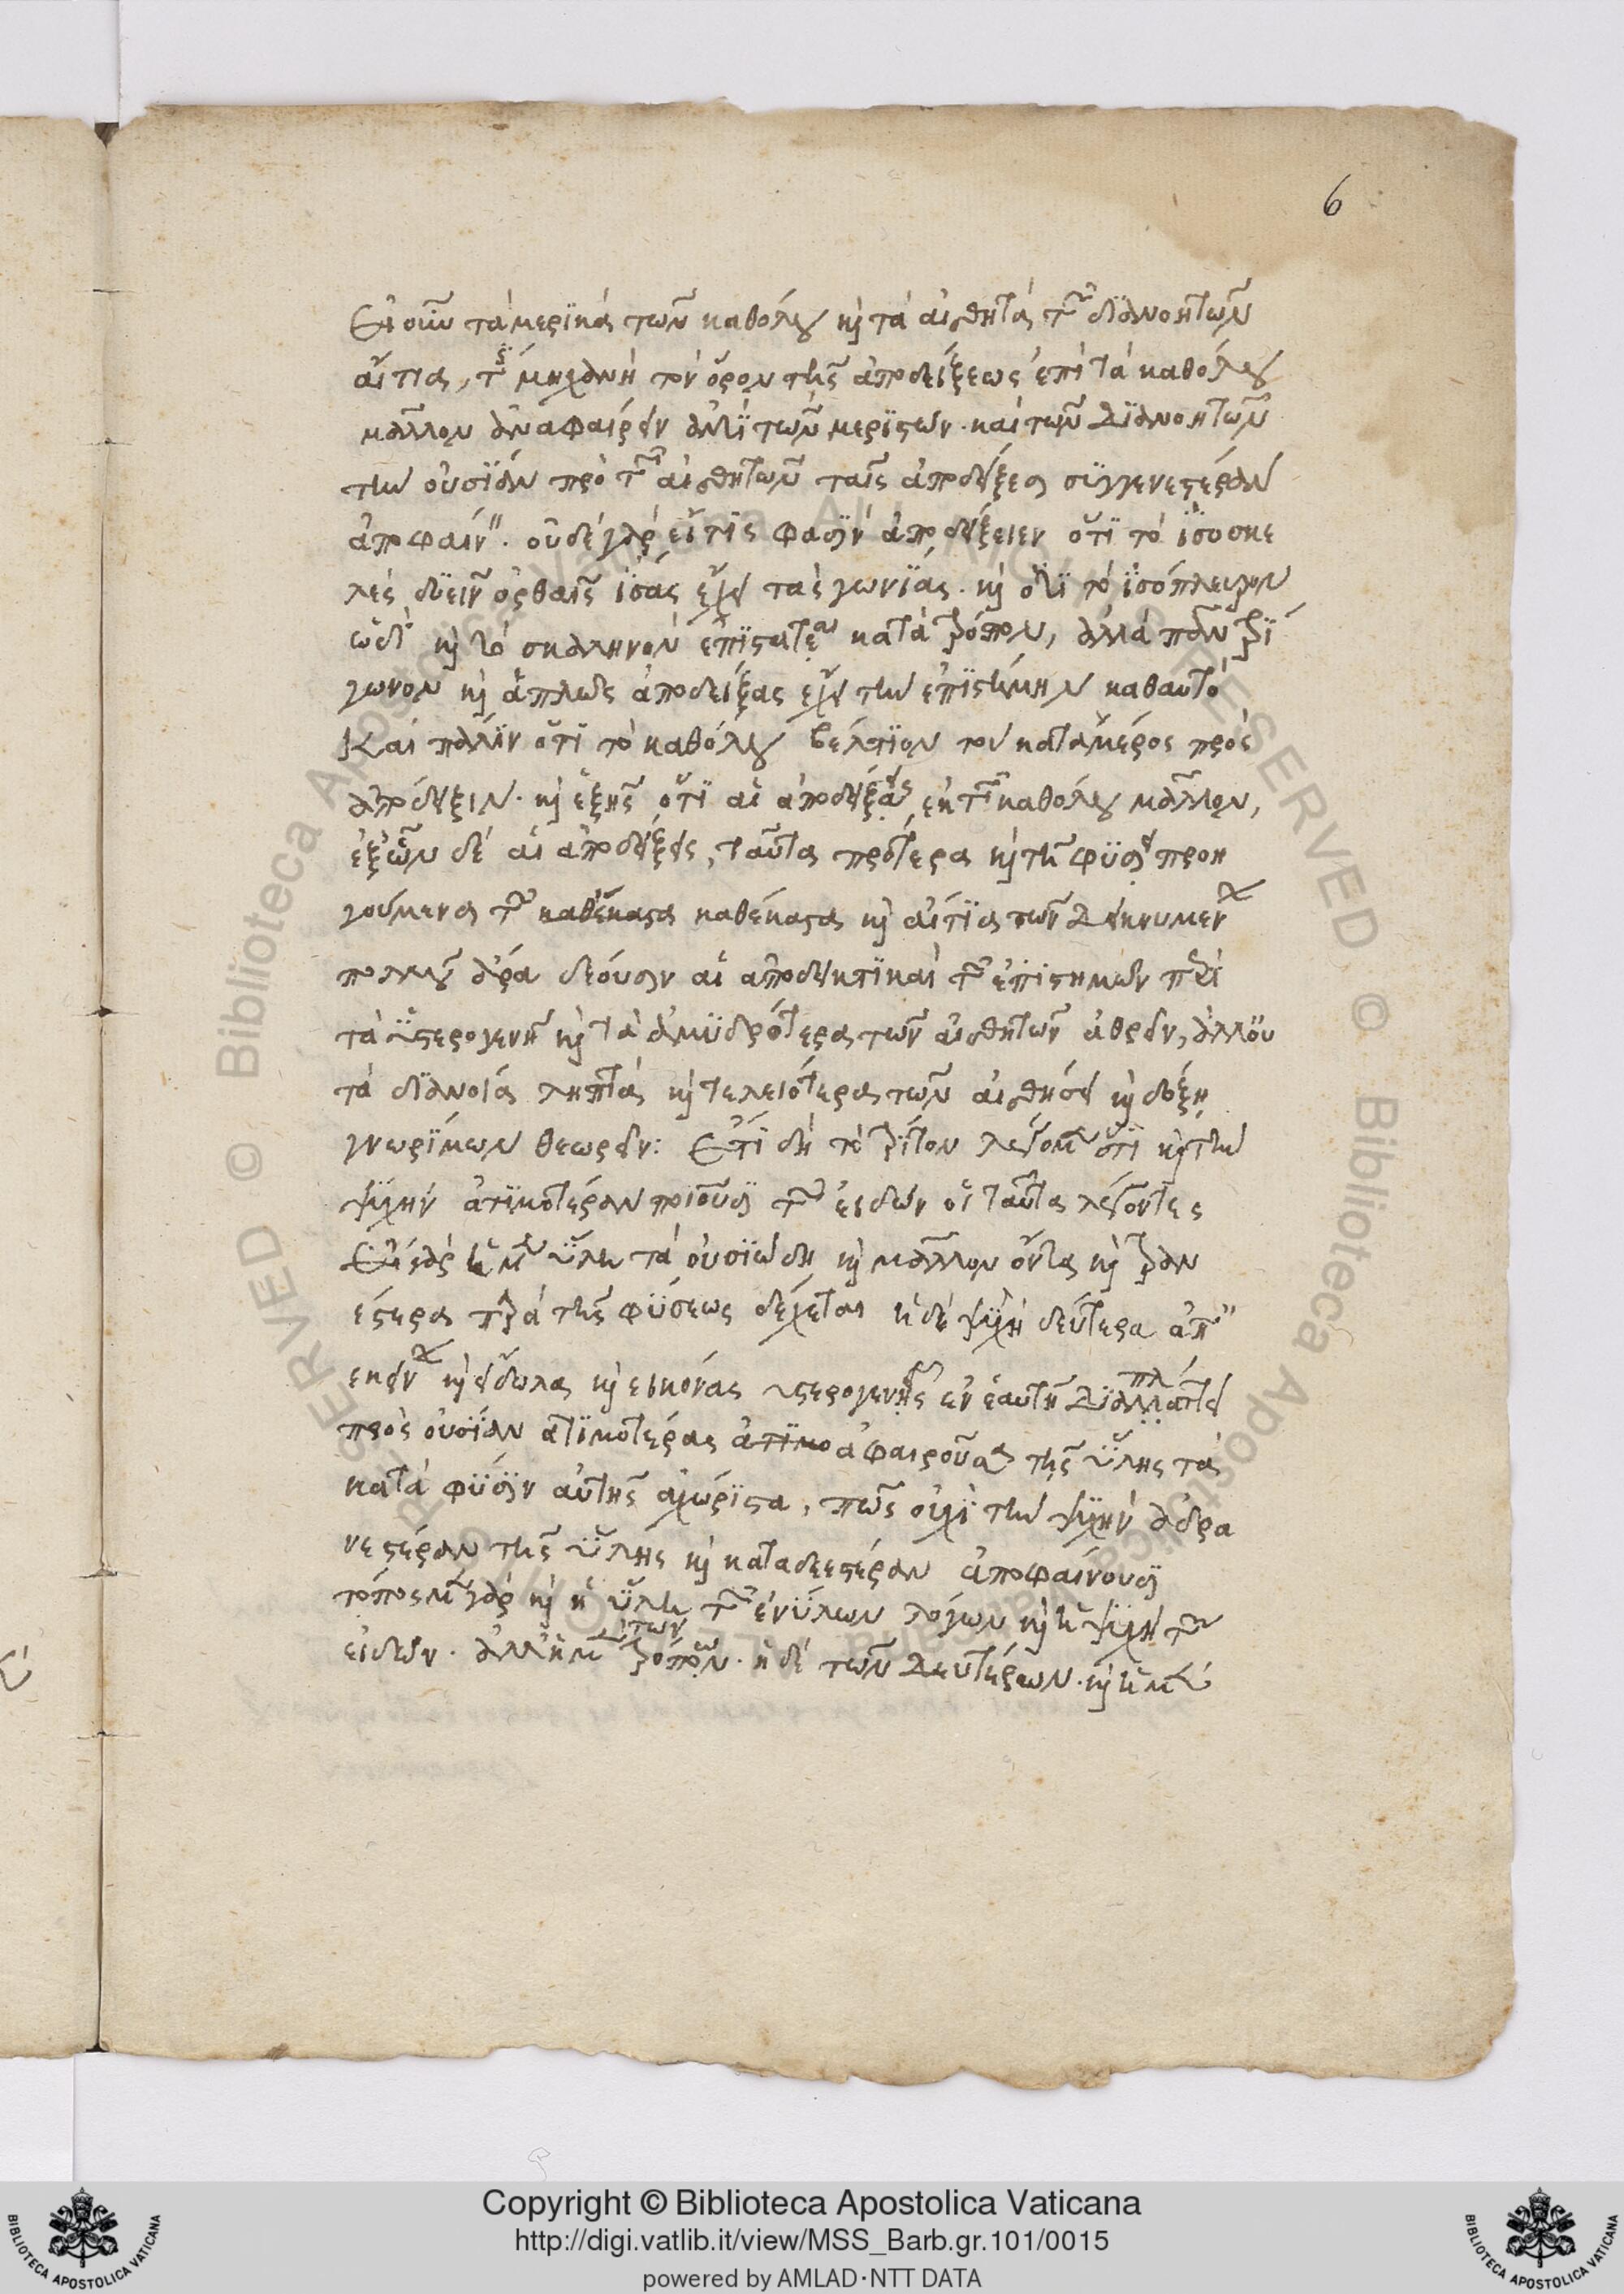 6
Εἰ οὖν τὰ μερικὰ τῶν καθόλου καὶ τὰ αἰσθητὰ τῶν διανοητῶν
αἴτια, τίς μηχανὴ τὸν ὅρον τῆς ἀποδείξεως ἐπὶ τὰ καθόλου
μᾶλλον ἀναφαίρειν ἀντὶ τῶν μεριστῶν. καὶ τῶν διανοητῶν
τὴν οὐσίαν πρὸ τῶν αἰσθητῶν ταῖς ἀποδείξεσι συγγενεστέραν
ἀποφαίν. οὐδὲ γὰρ εἴ τις φασὶν ἀποδείξειεν ὅτι τὸ ἰσοσκε
λὲς δυεῖν ὀρθαῖς ἴσας ἔχει τὰς γωνίας. καὶ ὅτι τὸ ἰσόπλευρον
ὡδὶ καὶ τὸ σκαληνὸν ἐπίσταται κατὰ τρόπον, ἀλλὰ πᾶν τρί
γωνον καὶ ἁπλῶς ἀποδείξας ἔχει τὴν ἐπιστήμην καθαυτό
Καὶ πάλιν ὅτι τὸ καθόλου βέλτιον τοῦ κατὰ μέρος πρὸς
ἀπόδειξιν. καὶ ἑξῆς ὅτι αἱ ἀποδείξεις ἐκ τῶν καθόλου μᾶλλον,
ἐξ ὧν δὲ αἱ ἀποδείξεις, ταῦτα πρότερα καὶ τῇ φύσει προη
γούμενα τῶν καθέκαστα καθέκαστα καὶ αἴτια τῶν δεικνυμέν
πολλοῦ ἄρα δέουσιν αἱ ἀποδεικτικαὶ τῶν ἐπιστημῶν περὶ
τὰ ὑστερογενῆ καὶ τὰ ἀμυδρότερα τῶν αἰσθητῶν ἀθρεῖν, ἀλλοὐ
τὰ διανοίᾳ ληπτὰ καὶ τελειότερα τῶν αἰσθήσει καὶ δόξῃ
γνωρίμων θεωρεῖν: Ἔτι δὴ τὸ τρίτον λέγομεν ὅτι καὶ τὴν
ψυχὴν ἀτιμοτέραν ποιοῦσι τῶν εἰδῶν οἱ ταῦτα λέγοντες
Εἰ γὰρ ἡ μὲν ὕλη τὰ οὐσιώδη καὶ μᾶλλον ὄντα καὶ τραν
έστερα παρὰ τῆς φύσεως δέχεται ἡ δὲ ψυχὴ δεύτερα ἀπ
εκείν καὶ εἴδωλα καὶ εἰκόνας ὑστερογενεῖς ἐν ἑαυτῇ διαπλάττει
πρὸς οὐσίαν ἀτιμοτέρας ἀτιμο ἀφαιροῦσα τῆς ὕλης τὰ
κατὰ φύσιν αὐτῆς ἀχώριστα, πῶς οὐχὶ τὴν ψυχὴν ἀδρα
νεστέραν τῆς ὕλης καὶ καταδεεστέραν ἀποφαίνουσι
τόπος μὲν γὰρ καὶ ἡ ὕλη τῶν ἐνύλων λόγων καὶ ἡ ψυχὴ τῶν
εἰδῶν. ἀλλ' ἡ μὲν τῶν πρώτων. ἡ δὲ τῶν δευτέρων. καὶ ἡ μὲν
Copyright © Biblioteca Apostolica Vaticana
http://digi.vatlib.it/view/MSS_Barb.gr.101/0015
powered by AMLAD·NTT DATA